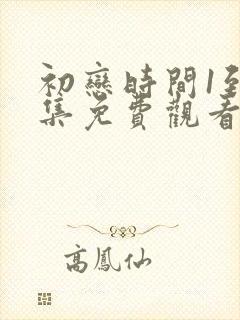 初戀時間1至
集免費觀看
高鳳仙